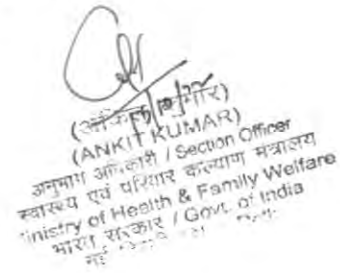 (अंकित कुमार)
(ANKIT KUMAR)
अनुभाग अधिकारी / Section Officer
स्वास्थ्य एवं परिवार कल्याण मंत्रालय
inistry of Health & Family Welfare
भारत सरकार / Govt. of India